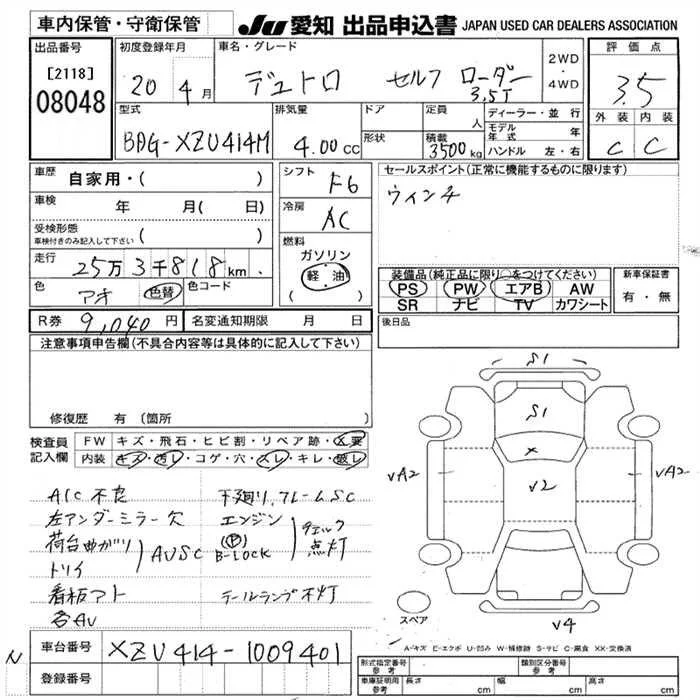 車内保管・守衛保管
JU 愛知 出品申込書 JAPAN USED CAR DEALERS ASSOCIATION
出品番号
[2118]
08048
初度登録年月
20 4月
車名・グレード
デュトロ セルフ ローダー
3.5T
2WD
・
4WD
評価点
3.5
外装 内装
C C
型式
BDG-XZU414M
排気量
4.00cc
ドア
形状
定員
人
積載
3500kg
ディーラー・並行
モデル年式 年
ハンドル 左・右
車歴
自家用・( )
車検
年 月( 日)
受検形態
車検付きのみ記入して下さい
( )
走行
25万3千818km
色
アオ
色替
色コード
シフト
F6
冷房
AC
燃料
ガソリン
軽油
( )
セールスポイント(正常に機能するものに限ります)
ウィンチ
装備品(純正品に限り○をつけてください)
PS PW エアB AW
SR ナビ TV カワシート
新車保証書
有・無
R券 9,040円
名変通知期限 月 日
後日品
注意事項申告欄(不具合内容等は具体的に記入して下さい)
修復歴 有(箇所 )
検査員
記入欄
FW キズ・飛石・ヒビ割・リペア跡・X要
内装 キズ・汚レ・コゲ・穴・スレ・キレ・破レ
A/C不良
左アンダーミラー欠
荷台曲ガリ
トリイ
AUSC
看板アト
各AU
下廻り、フレームSC
エンジン
(P)
B-LOCK
チェック
点灯
テールランプ不灯
S1
S1
X
V2
VA2
VA2
V4
スペア
A-キズ E-エクボ U-凹み W-補修跡 S-サビ C-腐食 XX-交換済
N
車台番号
XZU414-1009401
登録番号
形式指定番号
参考
類別区分番号
参考
車庫証明用
参考
長さ cm
幅 cm
高さ cm